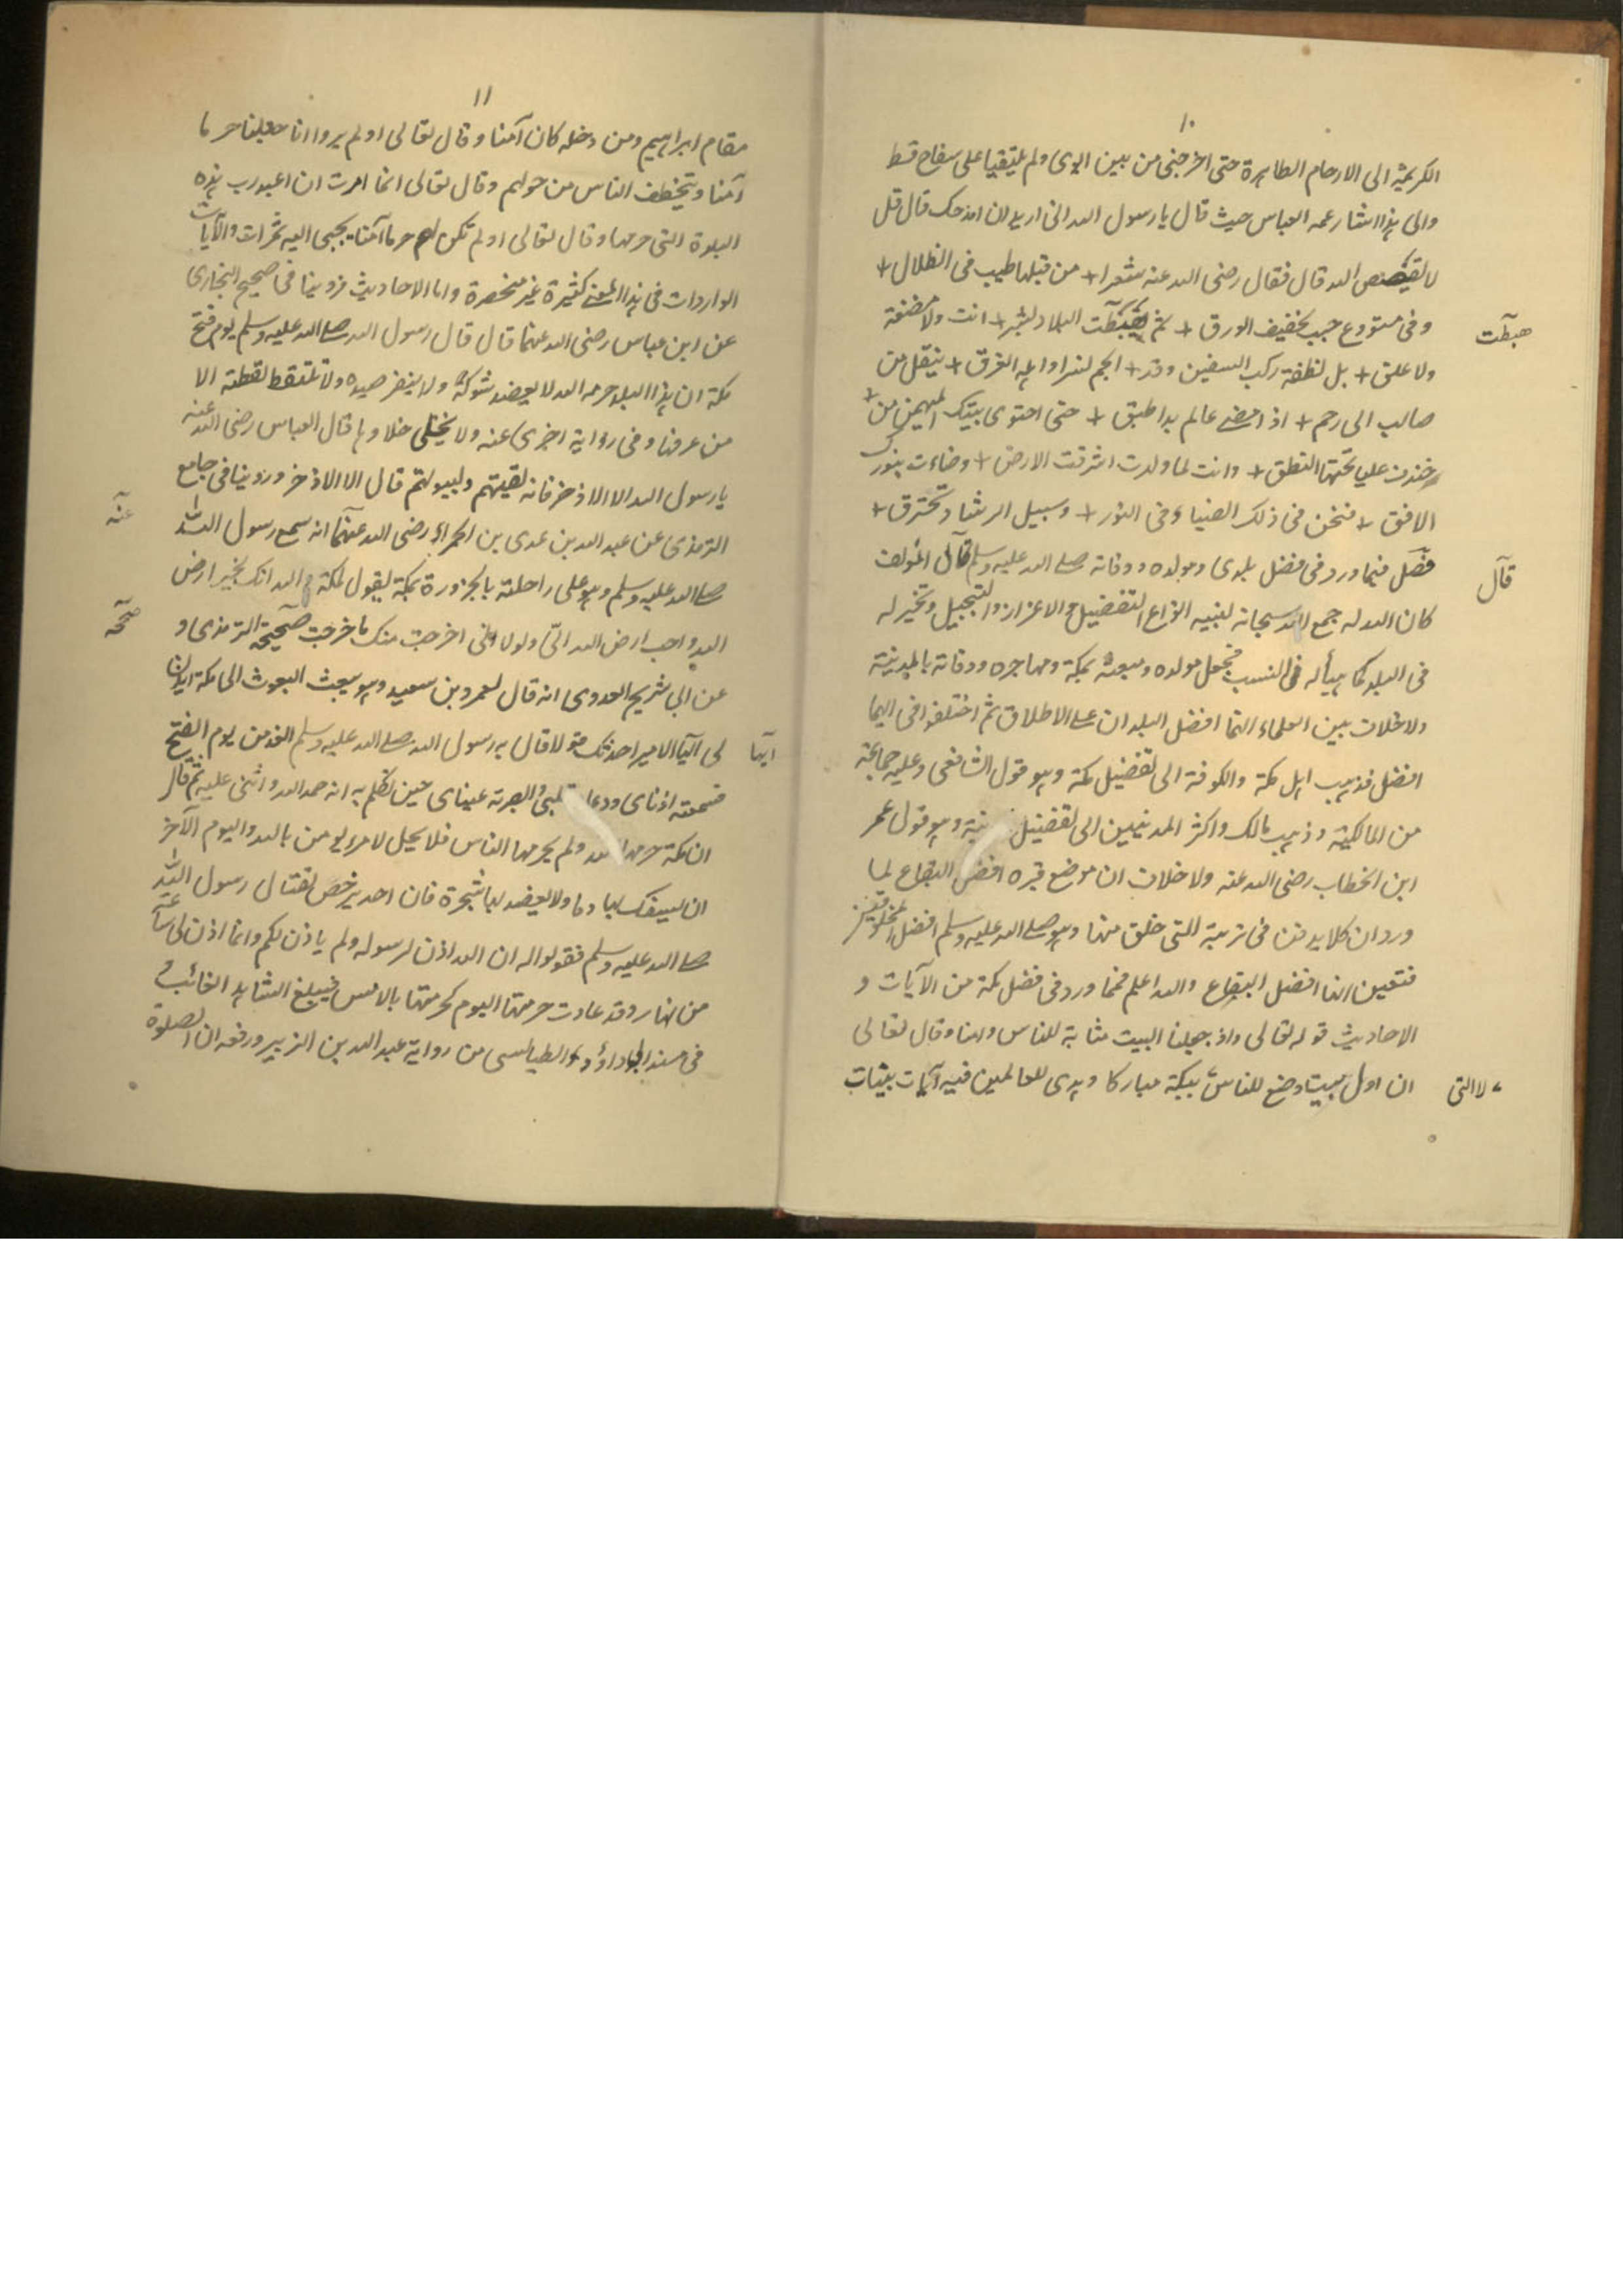 ١٠
الكريمة الى الارحام الطاهرة حتى اخرجنى من بين ابوى ولم يلتقيا على سفاح قط
والى هذا اشار عمه العباس حيث قال يا رسول الله انى اريد ان امدحك قال قل
لا يفضض الله قال فقال رضى الله عنه شعرا + من قبلها طبت فى الظلال +
وفى مستودع حيث يخصف الورق + ثم هبطت البلاد لا بشر + انت ولا مضغة
هبطت
ولا علق + بل نطفة تركب السفين وقد + الجم نسرا واهله الغرق + ينقل من
صالب الى رحم + اذا مضى عالم بدا طبق + حتى احتوى بيتك المهيمن من +
خندف عليا تحتها النطق + وانت لما ولدت اشرقت الارض + وضاءت بنورك
الافق + فنحن فى ذلك الضياء وفى النور + وسبيل الرشاد نخترق +
فصل فيما ورد فى فضل بلدى مولده ووفاته صلى الله عليه وسلم قال المؤلف
قال
كان الله له جمع الله سبحانه لنبيه انواع التفضيل والاعزاز والتبجيل وتخير له
فى البلد كما هيأ له فى النسب فجعل مولده ومبعثه بمكة ومهاجره ووفاته بالمدينة
ولا خلاف بين العلماء انهما افضل البلدان على الاطلاق ثم اختلفوا فى ايهما
افضل فذهب اهل مكة والكوفة الى تفضيل مكة وهو قول الشافعى وعليه جماعة
من المالكية وذهب مالك واكثر المدنيين الى تفضيل وهو قول عمر
ابن الخطاب رضى الله عنه ولا خلاف ان موضع قبره افضل البقاع لما
ورد ان كلا يدفن فى تربة التى خلق منها وهو صلى الله عليه وسلم افضل المخلوقين
فتعين انها افضل البقاع والله اعلم فمما ورد فى فضل مكة من الآيات و
الاحاديث قوله تعالى واذ جعلنا البيت مثابة للناس وامنا وقال تعالى
ان اول بيت وضع للناس ببكة مباركا وهدى للعالمين فيه آيات بينات
للذى
١١
مقام ابراهيم ومن دخله كان آمنا وقال تعالى اولم يروا انا جعلنا حرما
آمنا ويتخطف الناس من حولهم وقال تعالى انما امرت ان اعبد رب هذه
البلدة التى حرمها وقال تعالى اولم نمكن لهم حرما آمنا يجبى اليه ثمرات والآيات
الواردات فى هذا المعنى كثيرة غير منحصرة واما الاحاديث فروينا فى صحيح البخارى
عن ابن عباس رضى الله عنهما قال قال رسول الله صلى الله عليه وسلم يوم فتح
مكة ان هذا البلد حرمه الله لا يعضد شوكه ولا ينفر صيده ولا تلتقط لقطته الا
من عرفها وفى رواية اخرى عنه ولا يختلى خلاوها قال العباس رضى الله عنه
يا رسول الله الا الاذخر فانه لقينهم ولبيوتهم قال الا الاذخر وروينا فى جامع
الترمذى عن عبد الله بن عدى بن الحمراء رضى الله عنهما انه سمع رسول الله
عنه
صلى الله عليه وسلم وهو على راحلته بالجزورة بمكة يقول لمكة والله انك لخير ارض
الله واحب ارض الله الىّ ولولا انى اخرجت منك ما خرجت صححه الترمذى و
صححه
عن ابى شريح العدوى انه قال لعمرو بن سعيد وهو يبعث البعوث الى مكة ايذن
لى ايها الامير احدثك قولا قال به رسول الله صلى الله عليه وسلم الغد من يوم الفتح
ايها
فسمعته اذناى ووعاه قلبى وابصرته عيناى حين تكلم به انه حمد الله واثنى عليه ثم قال
ان مكة حرمها الله ولم يحرمها الناس فلا يحل لامرئ يومن بالله واليوم الآخر
ان يسفك بها دما ولا يعضد بها شجرة فان احد يرخص لقتال رسول الله
صلى الله عليه وسلم فقولوا له ان الله اذن لرسوله ولم ياذن لكم وانما اذن لى ساعة
من نهار وقد عادت حرمتها اليوم كحرمتها بالامس فليبلغ الشاهد الغائب و
فى مسند ابى داؤد الطيالسى من رواية عبد الله بن الزبير ورفعه ان الصلوة